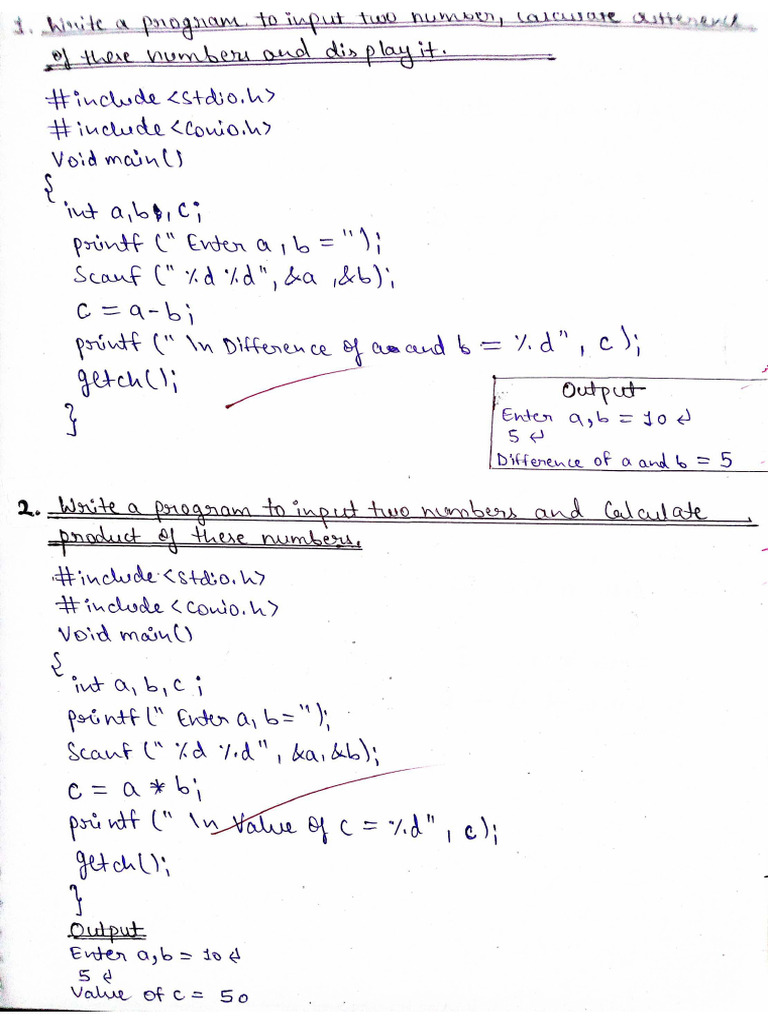 1. Write a program to input two number, calculate difference
of these numbers and display it.
#include <stdio.h>
#include <conio.h>
Void main()
{
int a,b,c;
printf (" Enter a, b = ");
Scanf (" %d %d", &a ,&b);
c = a-b;
printf (" \n Difference of a and b = %d" , c );
getch();
}
Output
Enter a,b = 10 ↵
5 ↵
Difference of a and b = 5
2. Write a program to input two numbers and Calculate
product of these numbers.
#include <stdio.h>
#include <conio.h>
Void main()
{
int a, b, c ;
printf (" Enter a, b= ");
Scanf (" %d %d" , &a, &b);
c = a * b;
printf (" \n Value of c = %d" , c);
getch();
}
Output
Enter a,b = 10 ↵
5 ↵
Value of c = 50